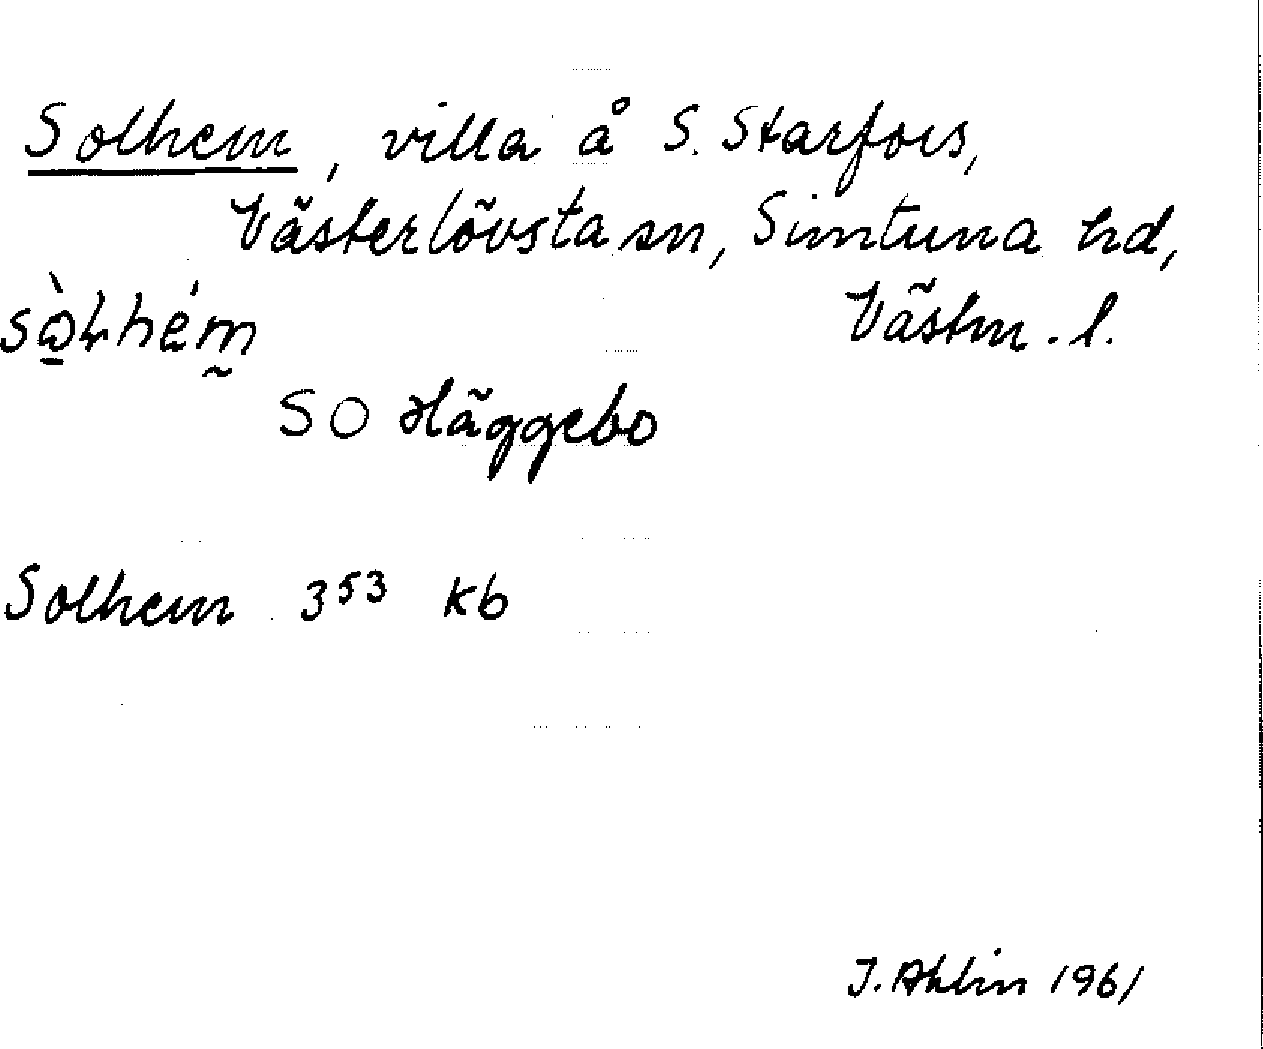 Solhem, villa å S. Starfors,
Västerlövsta sn, Simtuna hd,
Västm. l.
SO Häggebo
Solhem 353 kb
J. Ahlin 1961